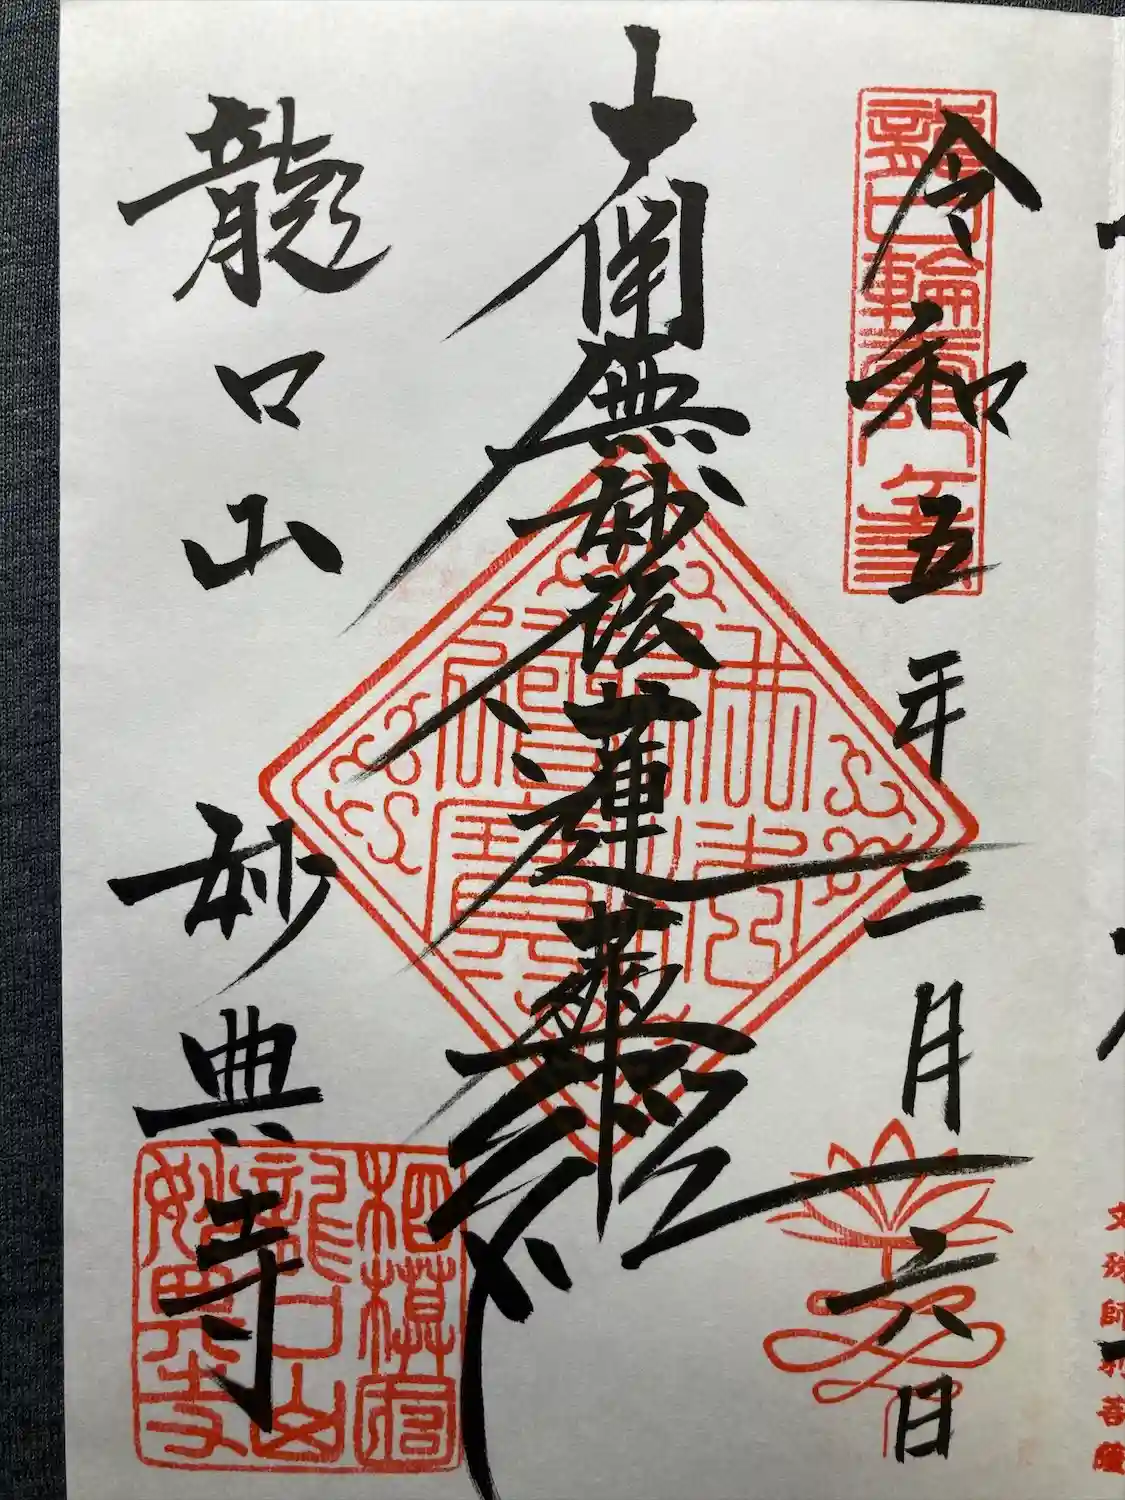 令和五年二月六日
南無妙法蓮華経
龍口山 妙典寺
相模宿
龍口山
妙典寺
文殊師利菩薩